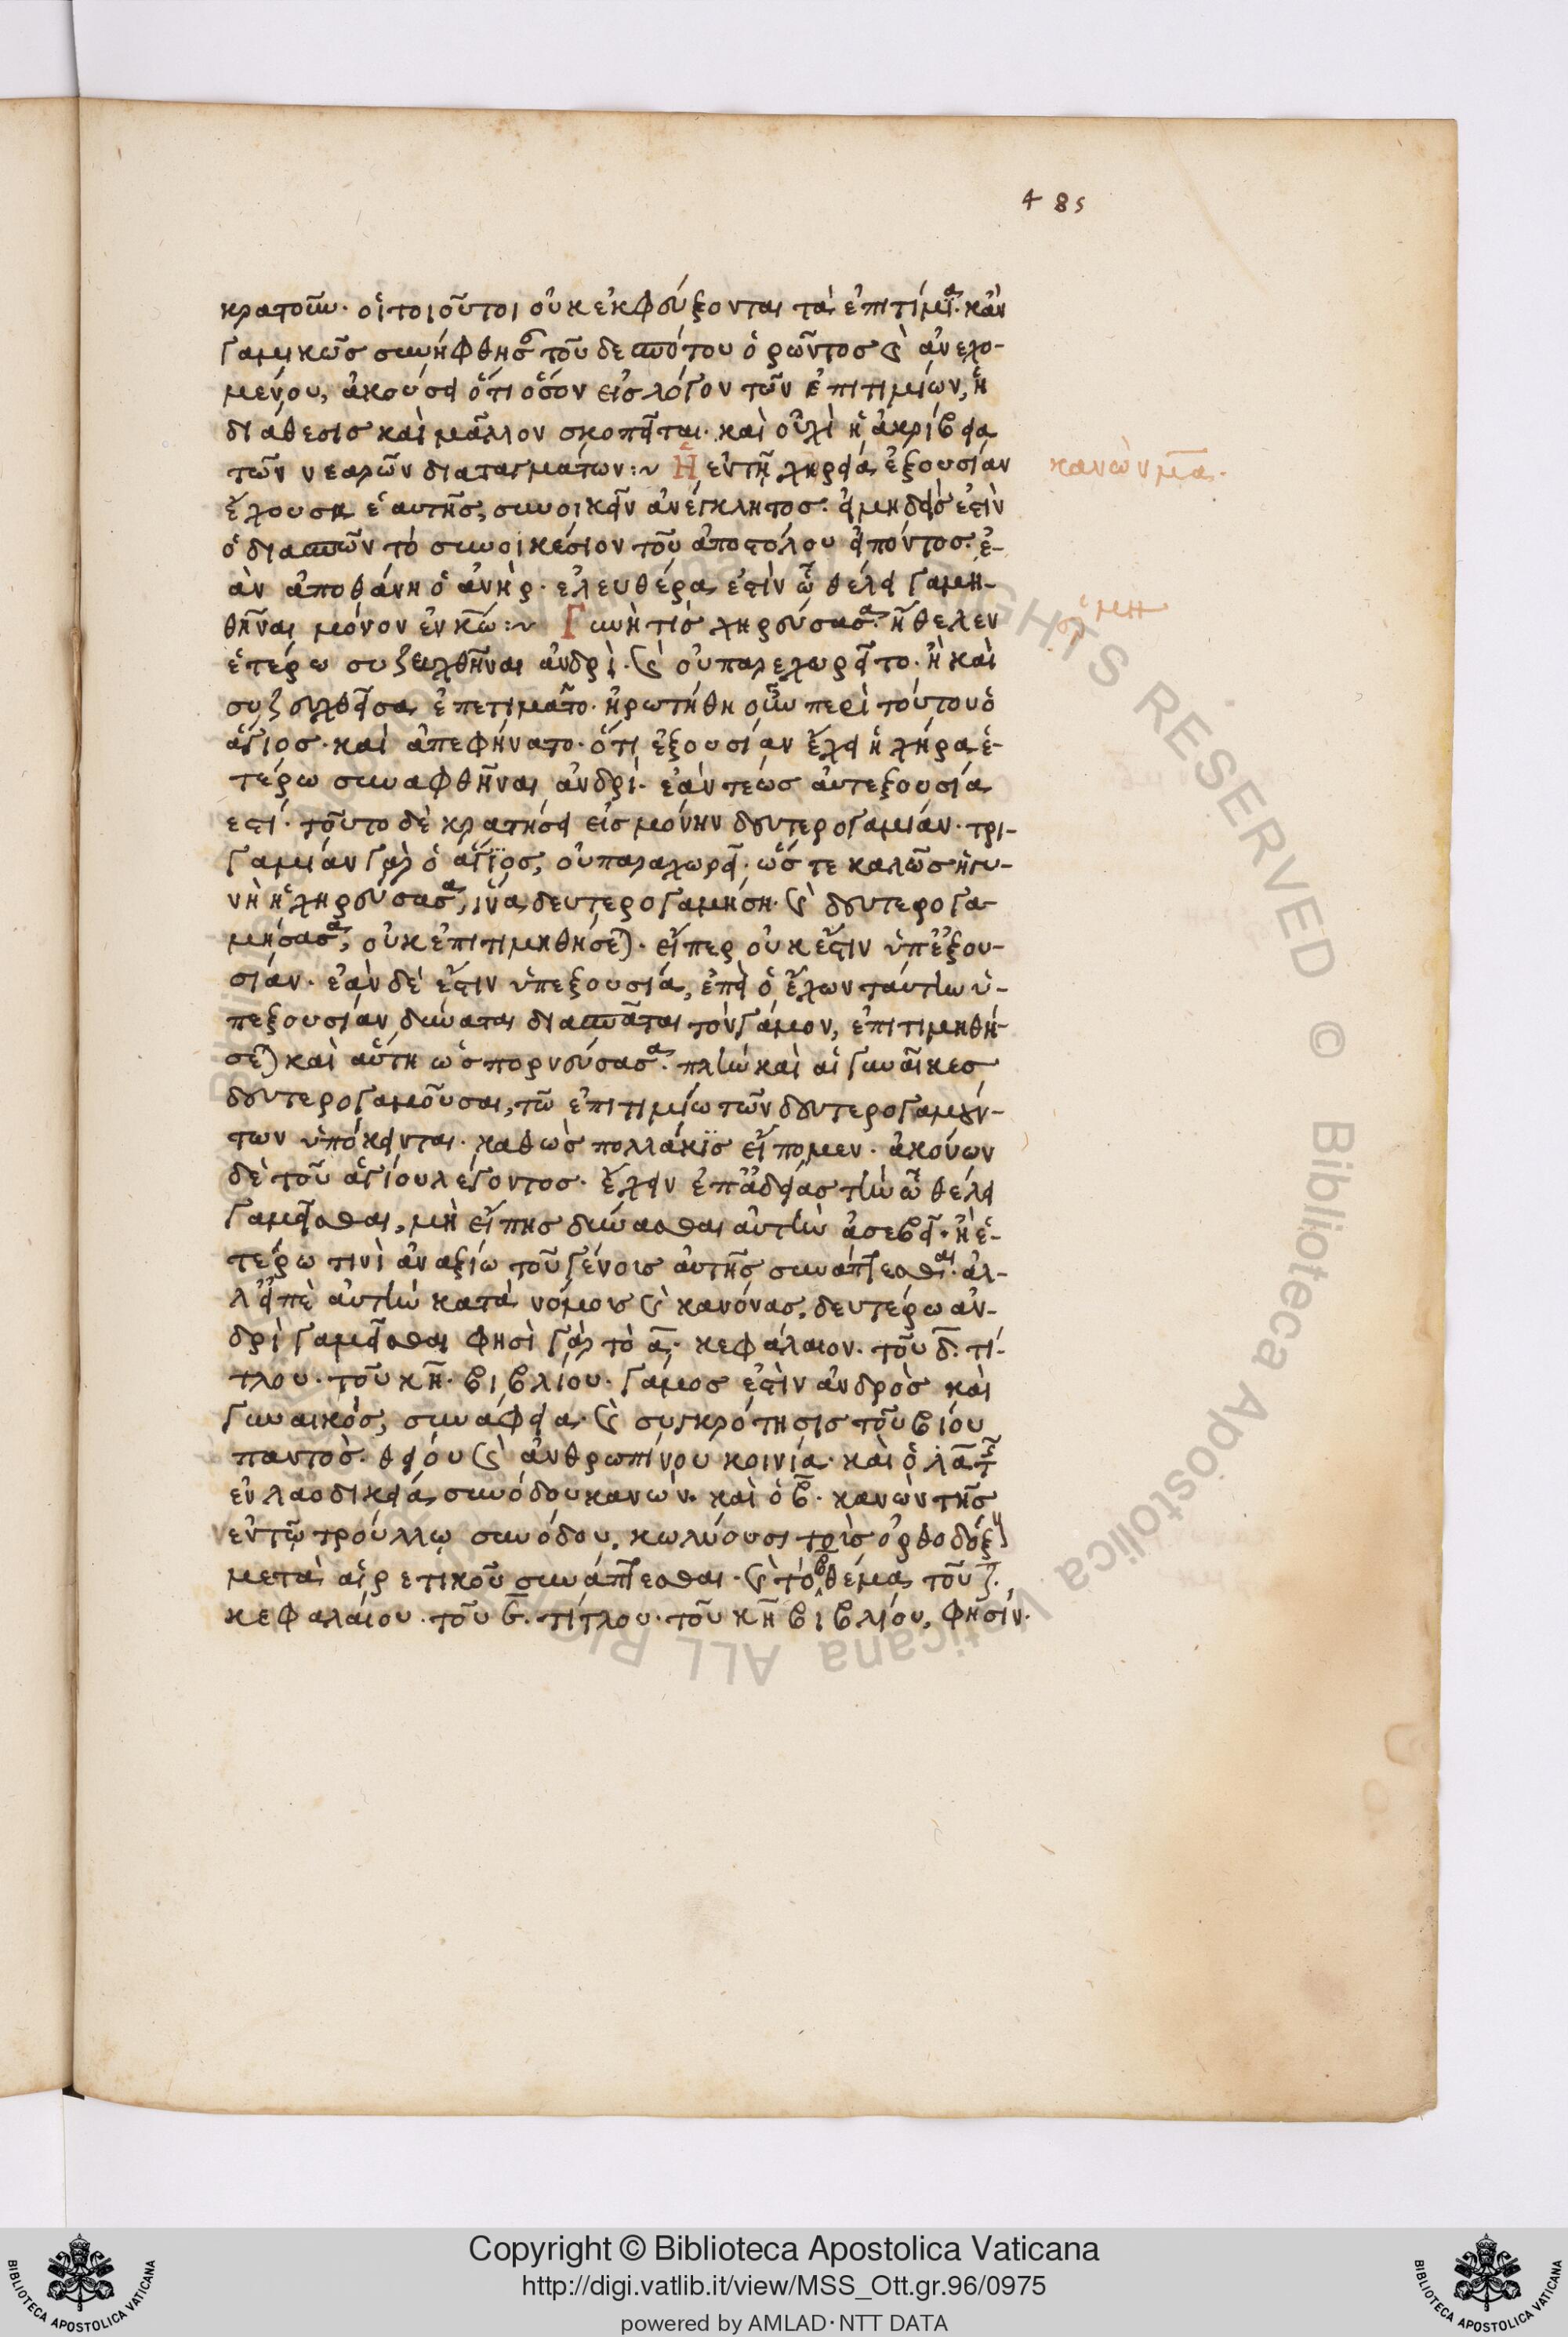 485
κρατοῦν. οἱ τοιοῦτοι οὐκ ἐκφεύξονται τὰ ἐπιτίμια. κἂν
γαμικῶς συνήφθησαν τοῦ δεσπότου ὁρῶντος καὶ ἀνεχο-
μένου, ἀκούσει ὅτι ὅσον εἰς λόγον τῶν ἐπιτιμίων, ἡ
διάθεσις καὶ μᾶλλον σκοπεῖται. καὶ οὐχὶ ἡ ἀκρίβεια
τῶν νεαρῶν διαταγμάτων:~ Ἡ ἐν τῇ χηρεία ἐξουσίαν
κανὼν μα.
ἔχουσα ἑαυτῆς, συνοικεῖν ἀνέγκλητος. εἰ μηδείς ἐστιν
ὁ διασπῶν τὸ συνοικέσιον τοῦ ἀποστόλου εἰπόντος. ἐ-
ὰν ἀποθάνη ὁ ἀνὴρ. ἐλευθέρα ἐστὶν ᾧ θέλει γαμη-
θῆναι μόνον ἐν κω:~ Γυνὴ τίς χηρεύσασα ἤθελεν
ἑτέρω συζευχθῆναι ἀνδρὶ. καὶ οὐ παρεχωρεῖτο. ἢ καὶ
συζευχθεῖσα ἐπετιμᾶτο. ἠρωτήθη οὖν περὶ τούτου ὁ
ἅγιος. καὶ ἀπεφήνατο. ὅτι ἐξουσίαν ἔχει ἡ χήρα ἑ-
τέρω συναφθῆναι ἀνδρὶ. ἐάν τέως αὐτεξουσία
ἐστί. τοῦτο δὲ κρατήσει εἰς μόνην δευτερογαμίαν. τρι-
γαμίαν γὰρ ὁ ἅγιος, οὐ παραχωρεῖ. ὥστε καλῶς ἡ γυ-
νὴ ἡ χηρεύσασα, ἵνα δευτερογαμήση. καὶ δευτερογα-
μήσασα, οὐκ ἐπιτιμηθήσεται. εἴπερ οὐκ ἔστιν ὑπ' ἐξου-
σίαν. ἐὰν δὲ ἔστιν ὑπεξουσία, ἐπεὶ ὁ ἔχων ταύτην ὑ-
πεξουσίαν δύναται διασπᾶται τὸν γάμον, ἐπιτιμηθή-
σεται καὶ αὕτη ὡς πορνεύσασα. πλὴν καὶ αἱ γυναῖκες
δευτερογαμοῦσαι, τῶ ἐπιτιμίω τῶν δευτερογαμούν-
των ὑπόκεινται. καθὼς πολλάκις εἴπομεν. ἀκούων
δὲ τοῦ ἁγίου λέγοντος. ἔχειν ἐπ' ἀδείας τὴν ᾧ θέλει
γαμεῖσθαι, μὴ εἴπης δύνασθαι αὐτὴν ἀσεβεῖ. ἢ ἑ-
τέρω τινὶ ἀναξίω τοῦ γένους αὐτῆς συνάπτεσθαι. ἀλ-
λ' εἰπὲ αὐτὴν κατὰ νόμους καὶ κανόνας, δευτέρω ἀν-
δρὶ γαμεῖσθαι φησὶ γὰρ τὸ α. κεφάλαιον. τοῦ δ. τί-
τλου. τοῦ κη. βιβλίου. γάμος ἐστὶν ἀνδρὸς καὶ
γυναικός, συνάφεια. καὶ συγκρότησις τοῦ βίου
παντὸς. θείου καὶ ἀνθρωπίνου κοινία. καὶ ὁ λα τῆς
ἐν λαοδικεία συνόδου κανών. καὶ ὁ β. κανὼν τῆς
ἐν τῷ τρούλλω συνόδου, κωλύουσι τοὺς ὀρθοδόξους
μετὰ αἱρετικοῦ συνάπτεσθαι. καὶ τὸ β θέμα τοῦ ζ.
κεφαλαίου. τοῦ ς. τίτλου. τοῦ κη βιβλίου, φησίν.
Copyright © Biblioteca Apostolica Vaticana
http://digi.vatlib.it/view/MSS_Ott.gr.96/0975
powered by AMLAD·NTT DATA
BIBLIOTECA APOSTOLICA VATICANA
BIBLIOTECA APOSTOLICA VATICANA